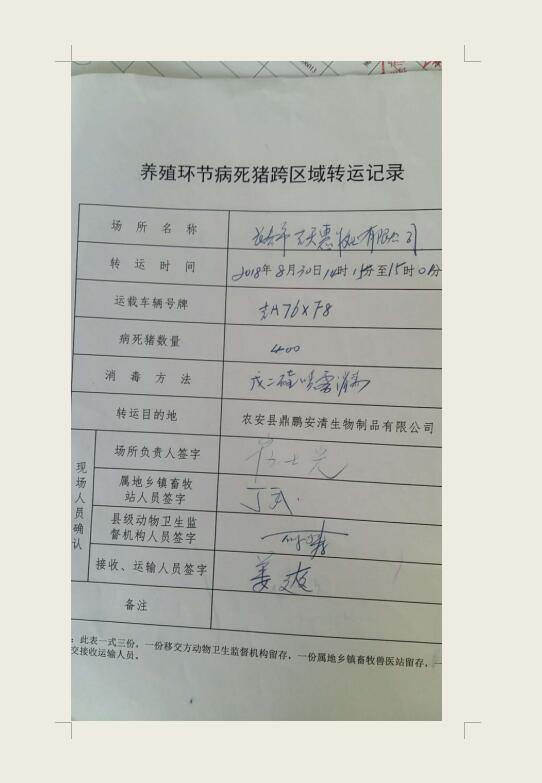 养殖环节病死猪跨区域转运记录
场所名称
转运时间 2018年8月30日14时15分至15时0分
运载车辆号牌 吉A76XF8
病死猪数量 400
消毒方法 戊二醛喷雾消毒
转运目的地 农安县鼎鹏安清生物制品有限公司
现场人员确认
场所负责人签字
属地乡镇畜牧
站人员签字
县级动物卫生监
督机构人员签字
接收、运输人员签字
备注
:此表一式三份，一份移交方动物卫生监督机构留存，一份属地乡镇畜牧兽医站留存，一
交接收运输人员。